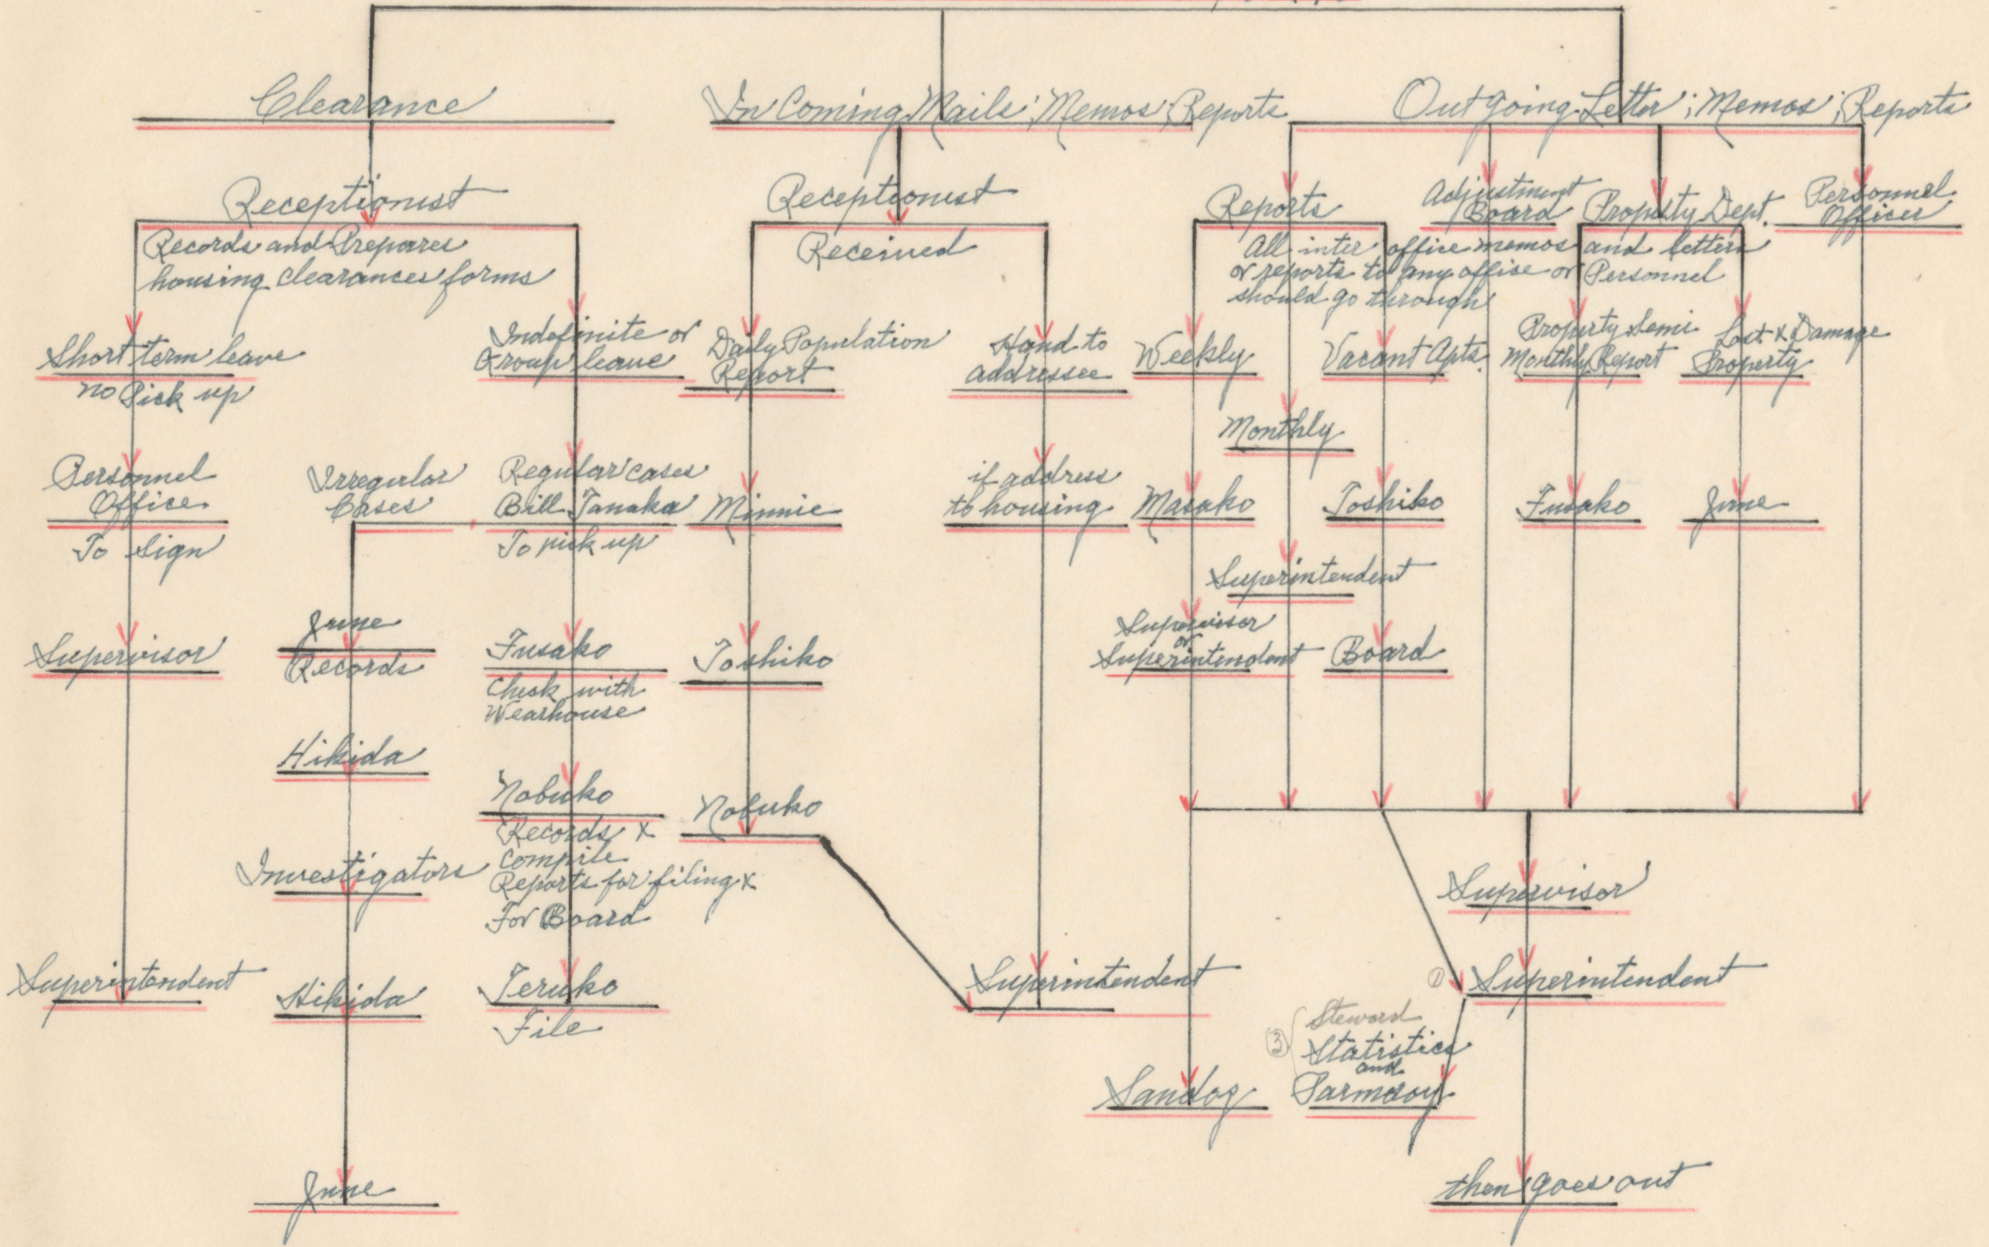 Clearance
Receptionist
Records and Prepares
housing clearances forms
Short term leave
no Pick up
Personnel
Office
To Sign
Supervisor
Superintendent
Indefinite or
Group leave
Irregular
Cases
June
Records
Hikida
Investigators
Hikida
June
Regular cases
Bill Tanaka
To pick up
Fusako
Check with
Wearhouse
Nobuko
Records &
Compile
Reports for filing &
For Board
Teruko
File
In Coming Mails; Memos; Reports
Receptionist
Received
Daily Population
Report
Minnie
Toshiko
Nobuko
Hand to
addressee
if address
to housing
Superintendent
Out going Letter; Memos; Reports
Reports
Adjustment
Board
Property Dept.
Personnel
Officer
All inter office memos and letters
or reports to any office or Personnel
should go through
Weekly
Masako
Supervisor
or
Superintendent
Sandoz
Monthly
Superintendent
Vacant Apts.
Toshiko
Board
Property Semi
Monthly Report
Fusako
Lost & Damage
Property
June
Supervisor
① Superintendent
③ Steward
Statistics
and
then goes out